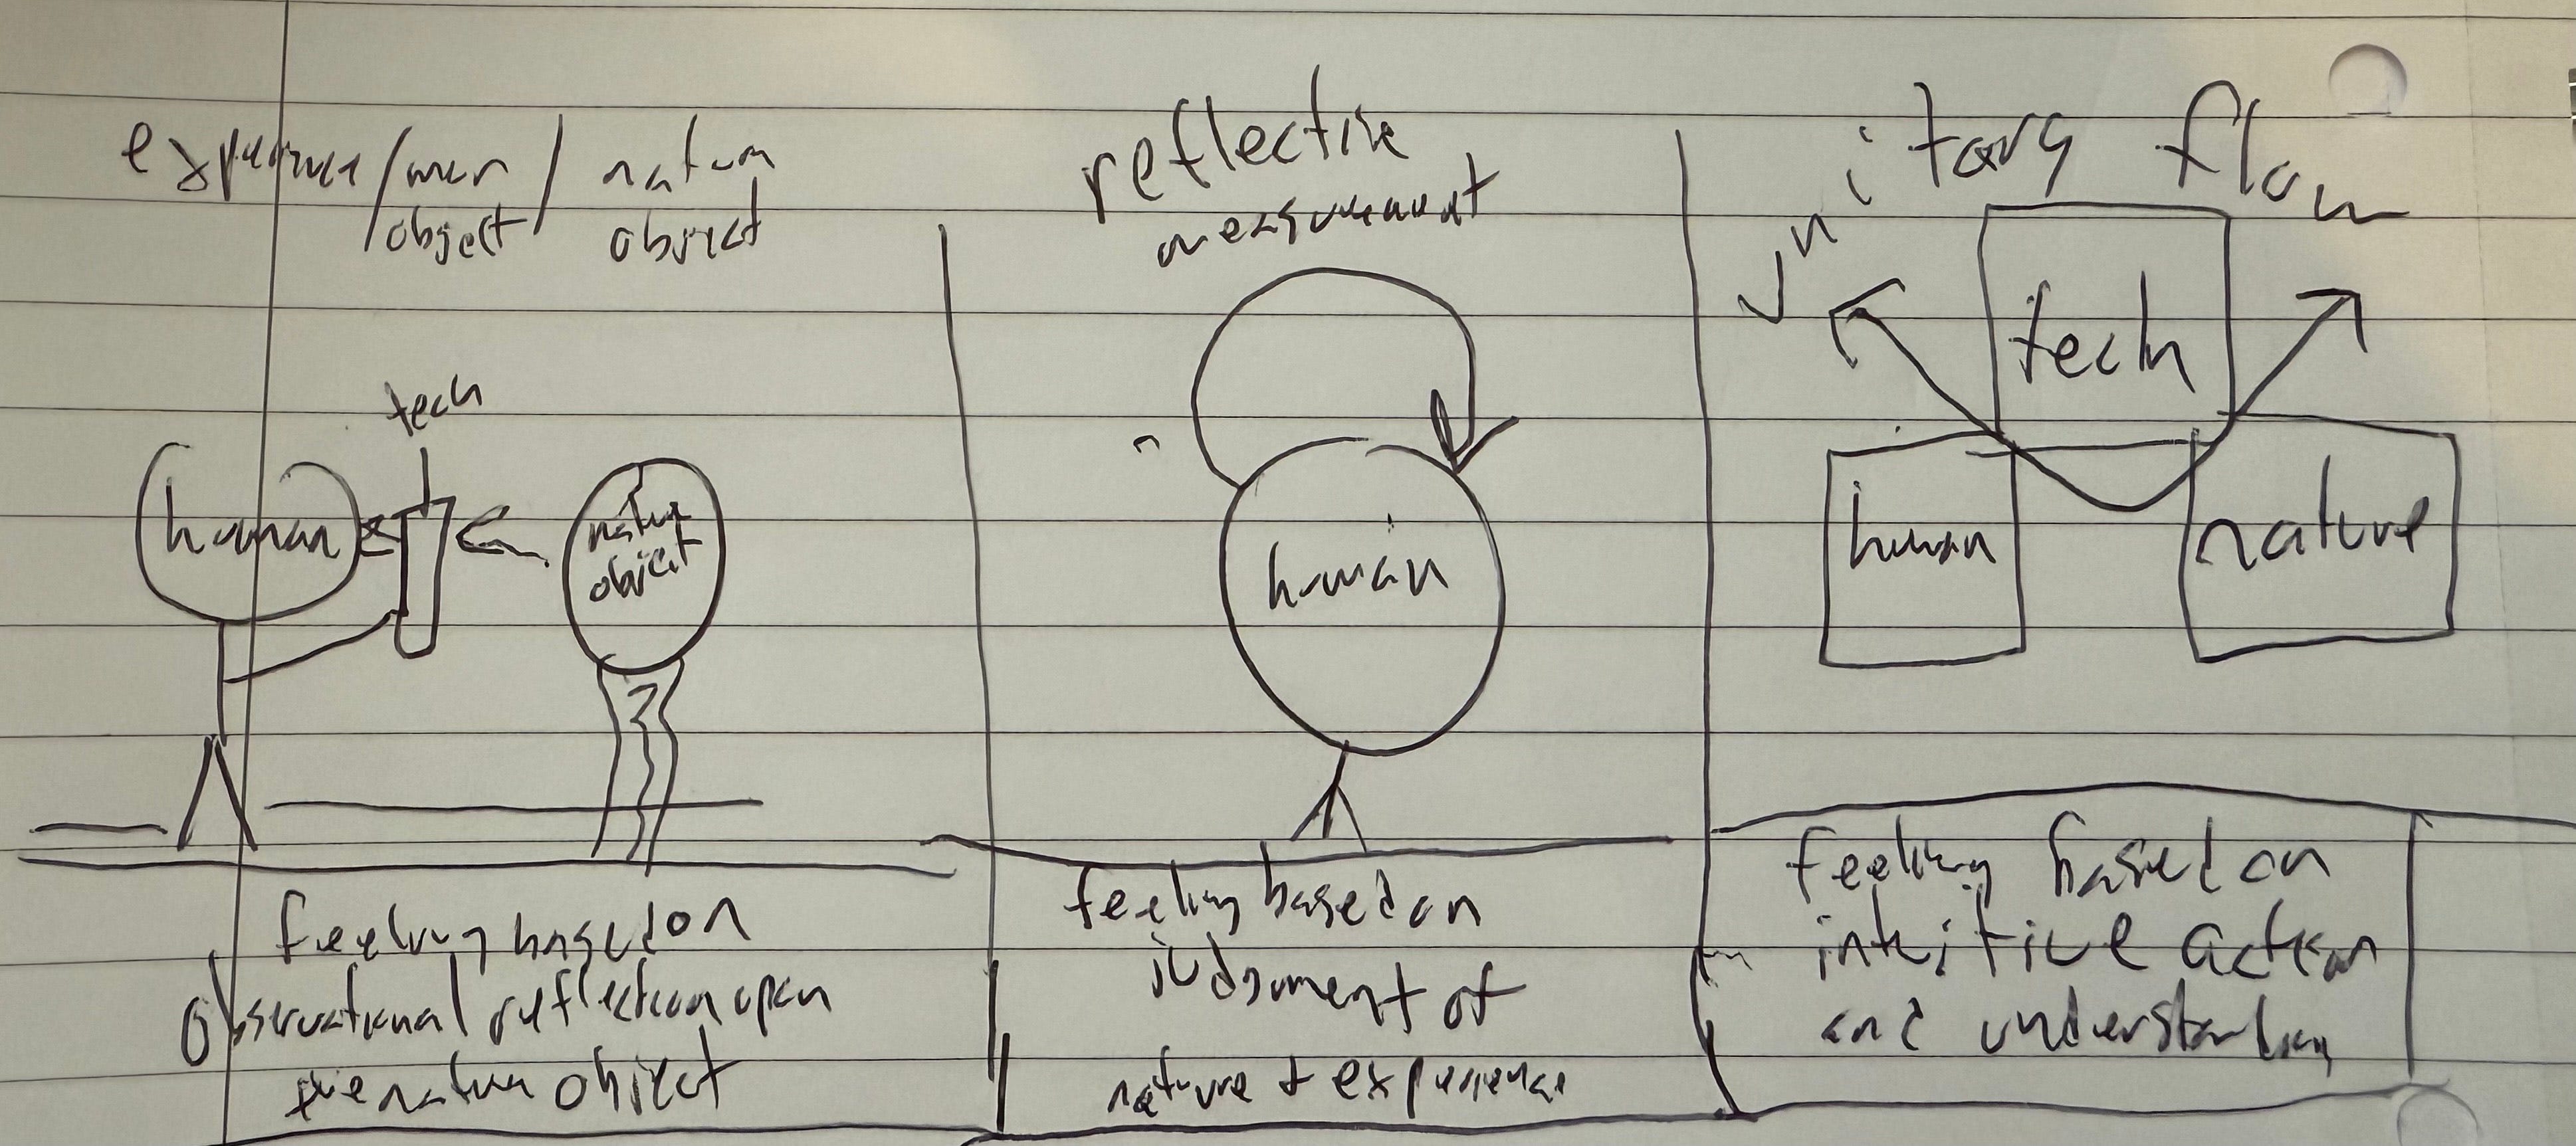 experience / man / nature
object object
tech
human
nature
object
feeling based on
observational reflection upon
the nature object
reflective
measurement
human
feeling based on
judgment of
nature + experience
unitary flow
tech
human
nature
feeling based on
intuitive action
and understanding